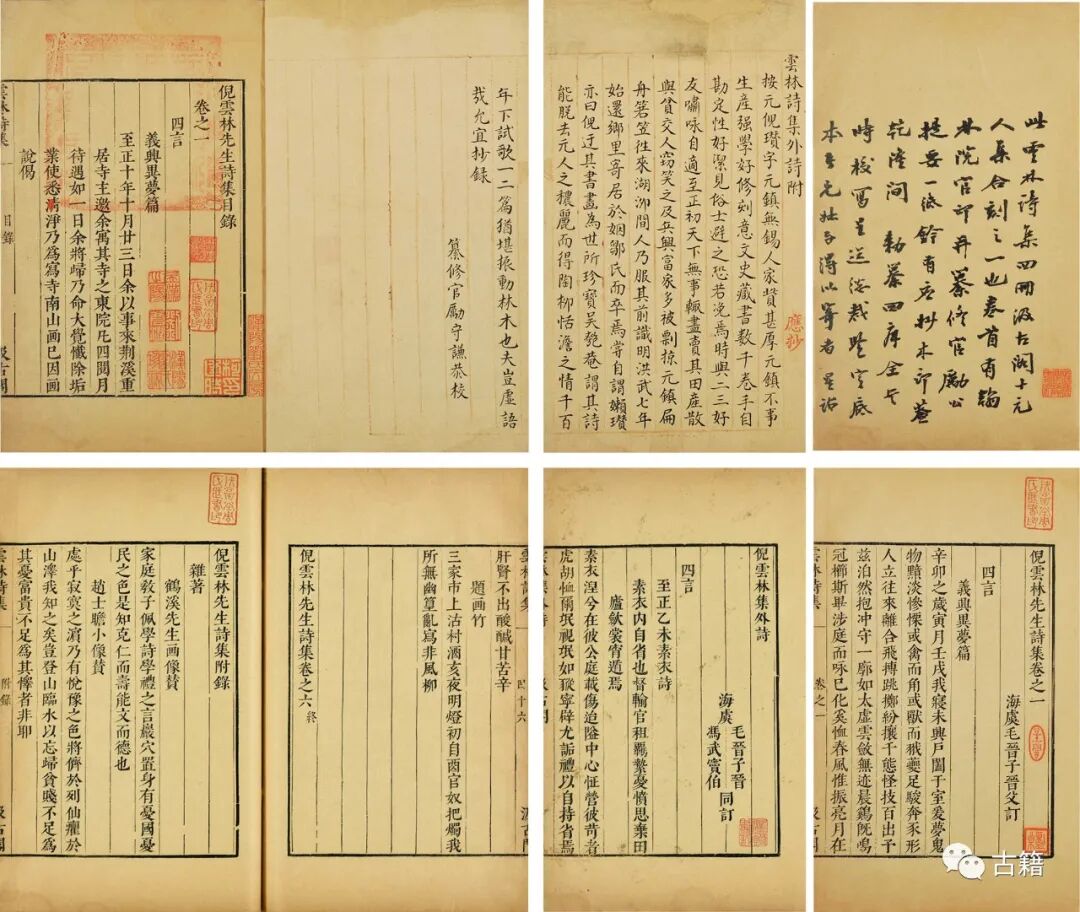 此雲林詩集四冊汲古閣十元
人集合刻之一也卷首有翰
林院官印并纂修官勵公
提要一紙鈐有應抄木印蓋
乾隆間勅纂四庫全書
時校寫呈送總裁鑒定底
本吾兄壯子得以寄者
雲林詩集外詩附
應抄
按元倪瓚字元鎮無錫人家貲甚厚元鎮不事
生產強學好修刻意文史藏書數千卷手自
勘定性好潔見俗士避之恐若浼焉時與二三好
友嘯咏自適至正初天下無事輒盡賣其田產散
與貧交人竊笑之及兵興富家多被剽掠元鎮扁
舟箬笠往來湖泖間人乃服其前識明洪武七年
始還鄉里寄居於姻鄒氏而卒焉嘗自謂嬾瓚
亦曰倪迂其書畫為世所珍寶吳匏菴謂其詩
能脫去元人之穠麗而得陶柳恬澹之情千百
年下試歌一二篇猶堪振動林木也夫豈虛語
哉允宜抄錄
纂修官勵守謙恭校
倪雲林先生詩集目錄
卷之一
四言
義興異夢篇
至正十年十月廿三日余以事來荆溪重
居寺主邀余寓其寺之東院凡四閱月
待遇如一日余將歸乃命大覺懺除垢
業使悉清淨乃為寫寺南山画已因画
說偈
雲林詩集 目錄 汲古閣
倪雲林先生詩集卷之一
海虞毛晉子晉父訂
四言
義興異夢篇
辛卯之歲寅月壬戌我寢未興戶闔于室爰夢鬼
物黯淡慘慄或禽而角或獸而戴夔足駿奔豕形
人立往來離合飛搏跳擲紛攘千態怪技百出予
茲泊然抱冲守一廓如太虛雲斂無迹晨鷄旣鳴
冠櫛斯畢涉庭而咏已化奚恤春風惟振亮月在
雲林詩集 卷之一
倪雲林集外詩
海虞 毛晉子晉 馮武竇伯 同訂
四言
至正乙未素衣詩
素衣内自省也督輸官租羈縶憂憤思棄田
廬歛裳宵遁焉
素衣湼兮在彼公庭載傷迫隘中怔營彼苛者
虎胡恤爾氓視氓如豵寧辟尤詬禮以自持省焉
雲林集外詩 汲古閣
肝腎不出酸醎甘苦辛
題画竹
三家市上沽村酒亥夜明燈初自酉官奴把燭我
所無幽篁亂寫非風柳
倪雲林先生詩集卷之六 終
四十六
倪雲林先生詩集附錄
雜著
鶴溪先生画像贊
家庭敎子佩學詩學禮之言巖穴置身有憂國憂
民之色是知克仁而壽能文而德也
趙士瞻小像贊
處乎寂寞之濵乃有悅豫之色將儕於列仙癯於
山澤我知之矣豈登山臨水以忘歸貧賤不足為
其憂富貴不足為其懌者非耶
雲林詩集 附錄 汲古閣
古籍